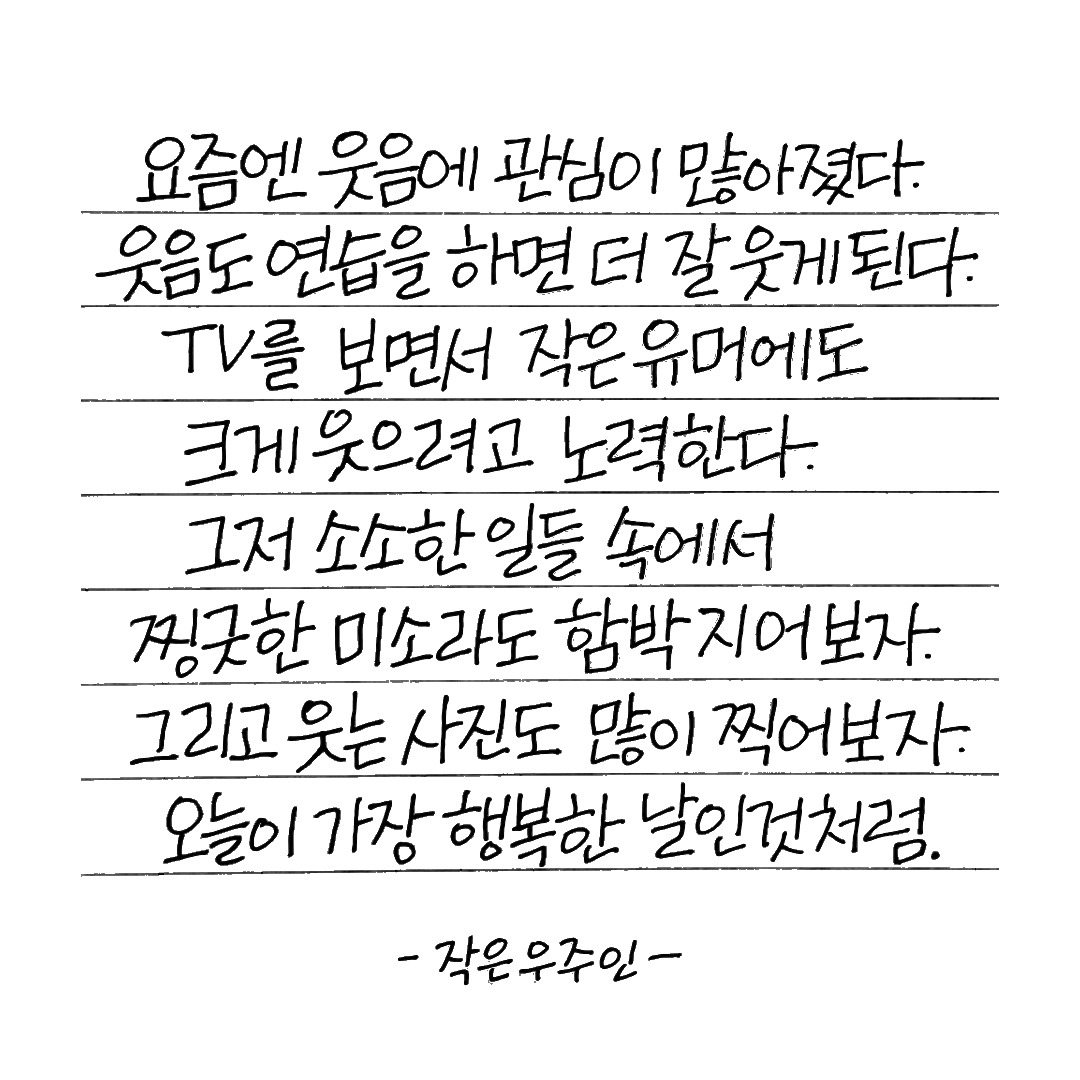 요즘엔 웃음에 관심이 많아졌다.
웃음도 연습을 하면 더 잘 웃게 된다.
TV를 보면서 작은 유머에도
크게 웃으려고 노력한다.
그저 소소한 일들 속에서
찡긋한 미소라도 함박 지어보자.
그리고 웃는 사진도 많이 찍어보자.
오늘이 가장 행복한 날인것처럼.
- 작은우주인 -